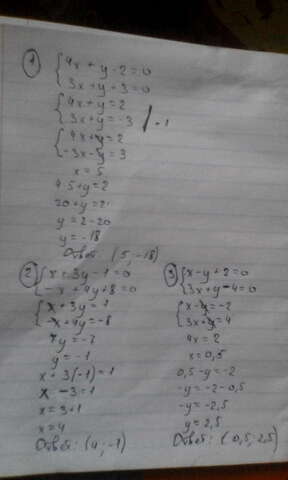 1 { 4x + y - 2 = 0
3x + y + 3 = 0
{ 4x + y = 2
3x + y = -3 | · -1
{ 4x + y = 2
-3x - y = 3
x = 5
4·5 + y = 2
20 + y = 2
y = 2 - 20
y = -18
Ответ: (5; -18)
2 { x + 3y - 1 = 0
-x + 4y + 8 = 0
{ x + 3y = 1
-x + 4y = -8
7y = -7
y = -1
x + 3(-1) = 1
x - 3 = 1
x = 3 + 1
x = 4
Ответ: (4; -1)
3 { x - y + 2 = 0
3x + y - 4 = 0
{ x - y = -2
3x + y = 4
4x = 2
x = 0,5
0,5 - y = -2
-y = -2 - 0,5
-y = -2,5
y = 2,5
Ответ: (0,5; 2,5)